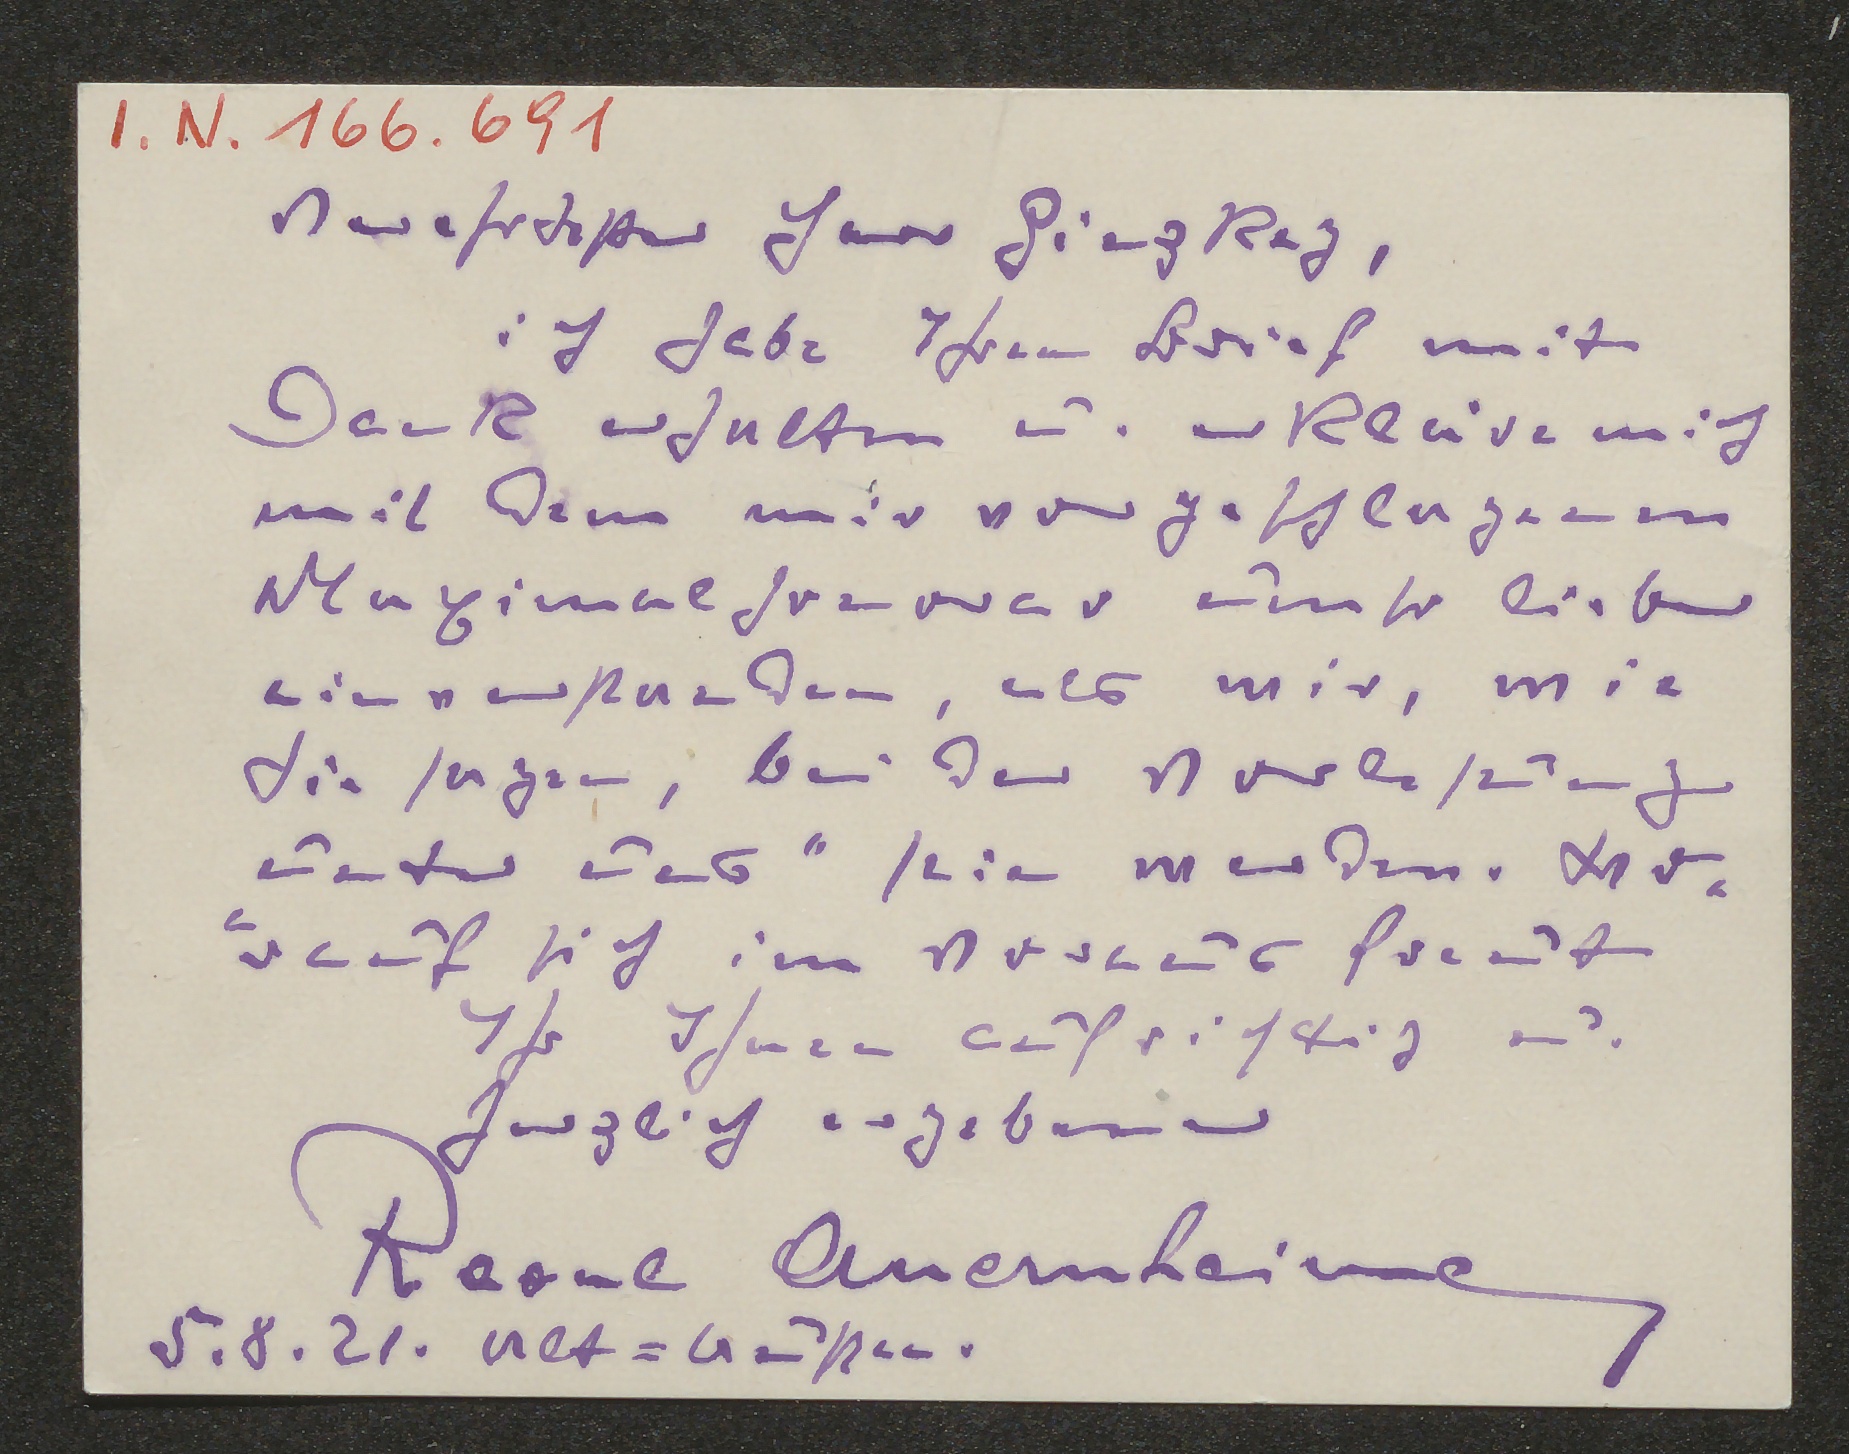 I. N. 166.691
Verehrtester Herr Ginzkey,
ich habe Ihren Brief mit
Dank erhalten u. erkläre mich
mit dem mir vorgeschlagenen
Maximalhonorar umso lieber
einverstanden, als wir, wie
Sie sagen, bei der Vorlesung
unter uns" sein werden. Wo-
rauf sich im Voraus freut
Ihr Ihnen aufrichtig u.
herzlich ergebener
Raoul Auernheimer
5.8.21. Alt=Aussee.